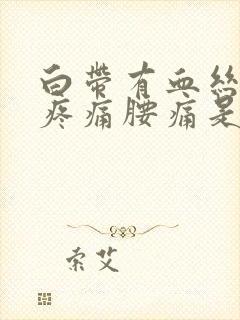 白带有血丝
疼痛腰痛是
索艾